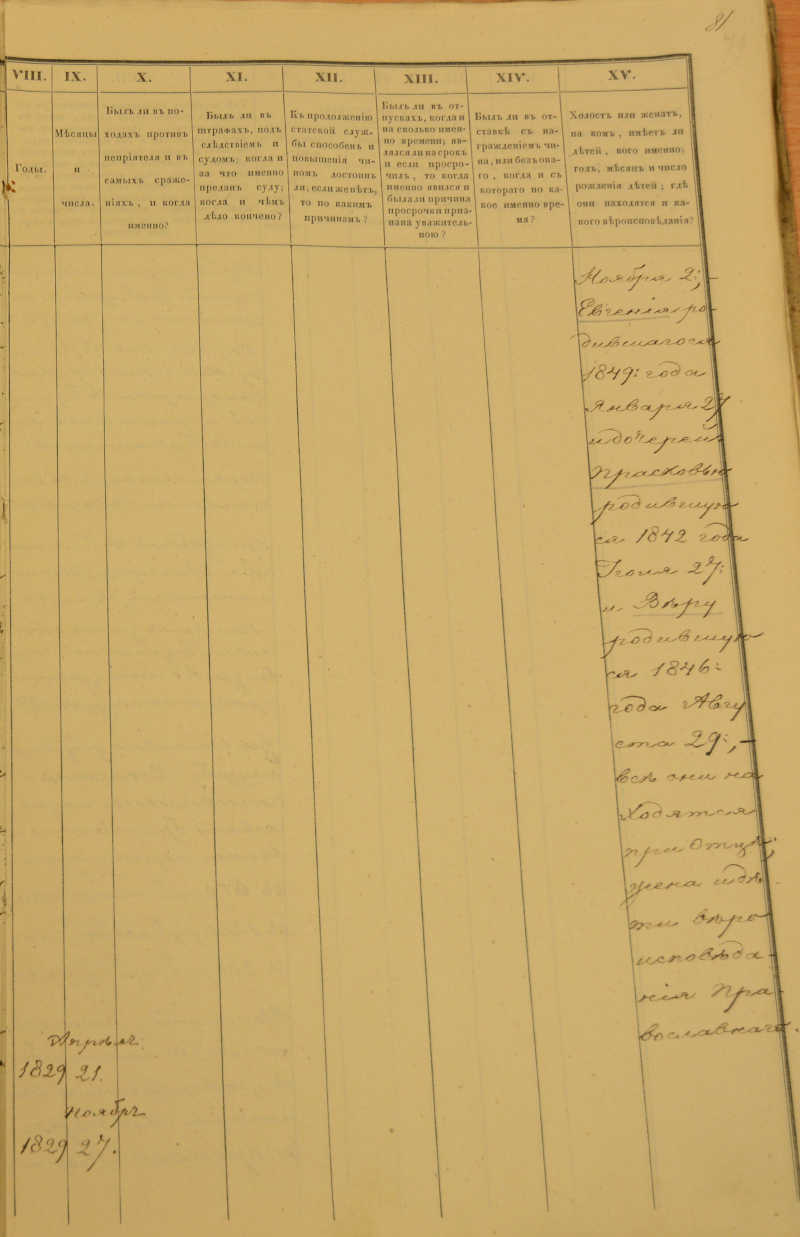 81
VIII.
IX.
X.
XI.
XII.
XIII.
XIV.
XV.
Годы.
Мѣсяцы
и
числа.
Былъ ли въ по-
ходахъ противъ
непріятеля и въ
самыхъ сраже-
ніяхъ, и когда
именно?
Былъ ли въ
штрафахъ, подъ
слѣдствіемъ и
судомъ; когда и
за что именно
преданъ суду;
когда и чѣмъ
дѣло кончено?
Къ продолженію
статской служ-
бы способенъ и
повышенія чи-
номъ достоинъ
ли; если же нѣтъ,
то по какимъ
причинамъ?
Былъ ли въ от-
пускахъ, когда и
на сколько имен-
но времени; яв-
лялся ли на срокъ
и если просро-
чилъ, то когда
именно явился и
была ли причина
просрочки приз-
нана уважитель-
ною?
Былъ ли въ от-
ставкѣ съ на-
гражденіемъ чи-
на, или безъ она-
го, когда и съ
котораго по ка-
кое именно вре-
мя?
Холостъ или женатъ,
на комъ, имѣетъ ли
дѣтей, кого именно;
годъ, мѣсяцъ и число
рожденія дѣтей; гдѣ
они находятся и ка-
кого вѣроисповѣданія?
Ноября 2;
Евгенія ро
дившагося
года
Января 27
и дочерей
Прасковью
родившую
ся 1842 года
Іюня 27:
и Вѣру
родившую
ся 1846:
года Авгу
ста 29;
всѣ они на
ходятся
при Отцѣ;
жена и дѣ
ти вѣро
исповѣда
нія Пра
вославнаго.
Апрѣля
1829 21.
Ноябр
1829 27.